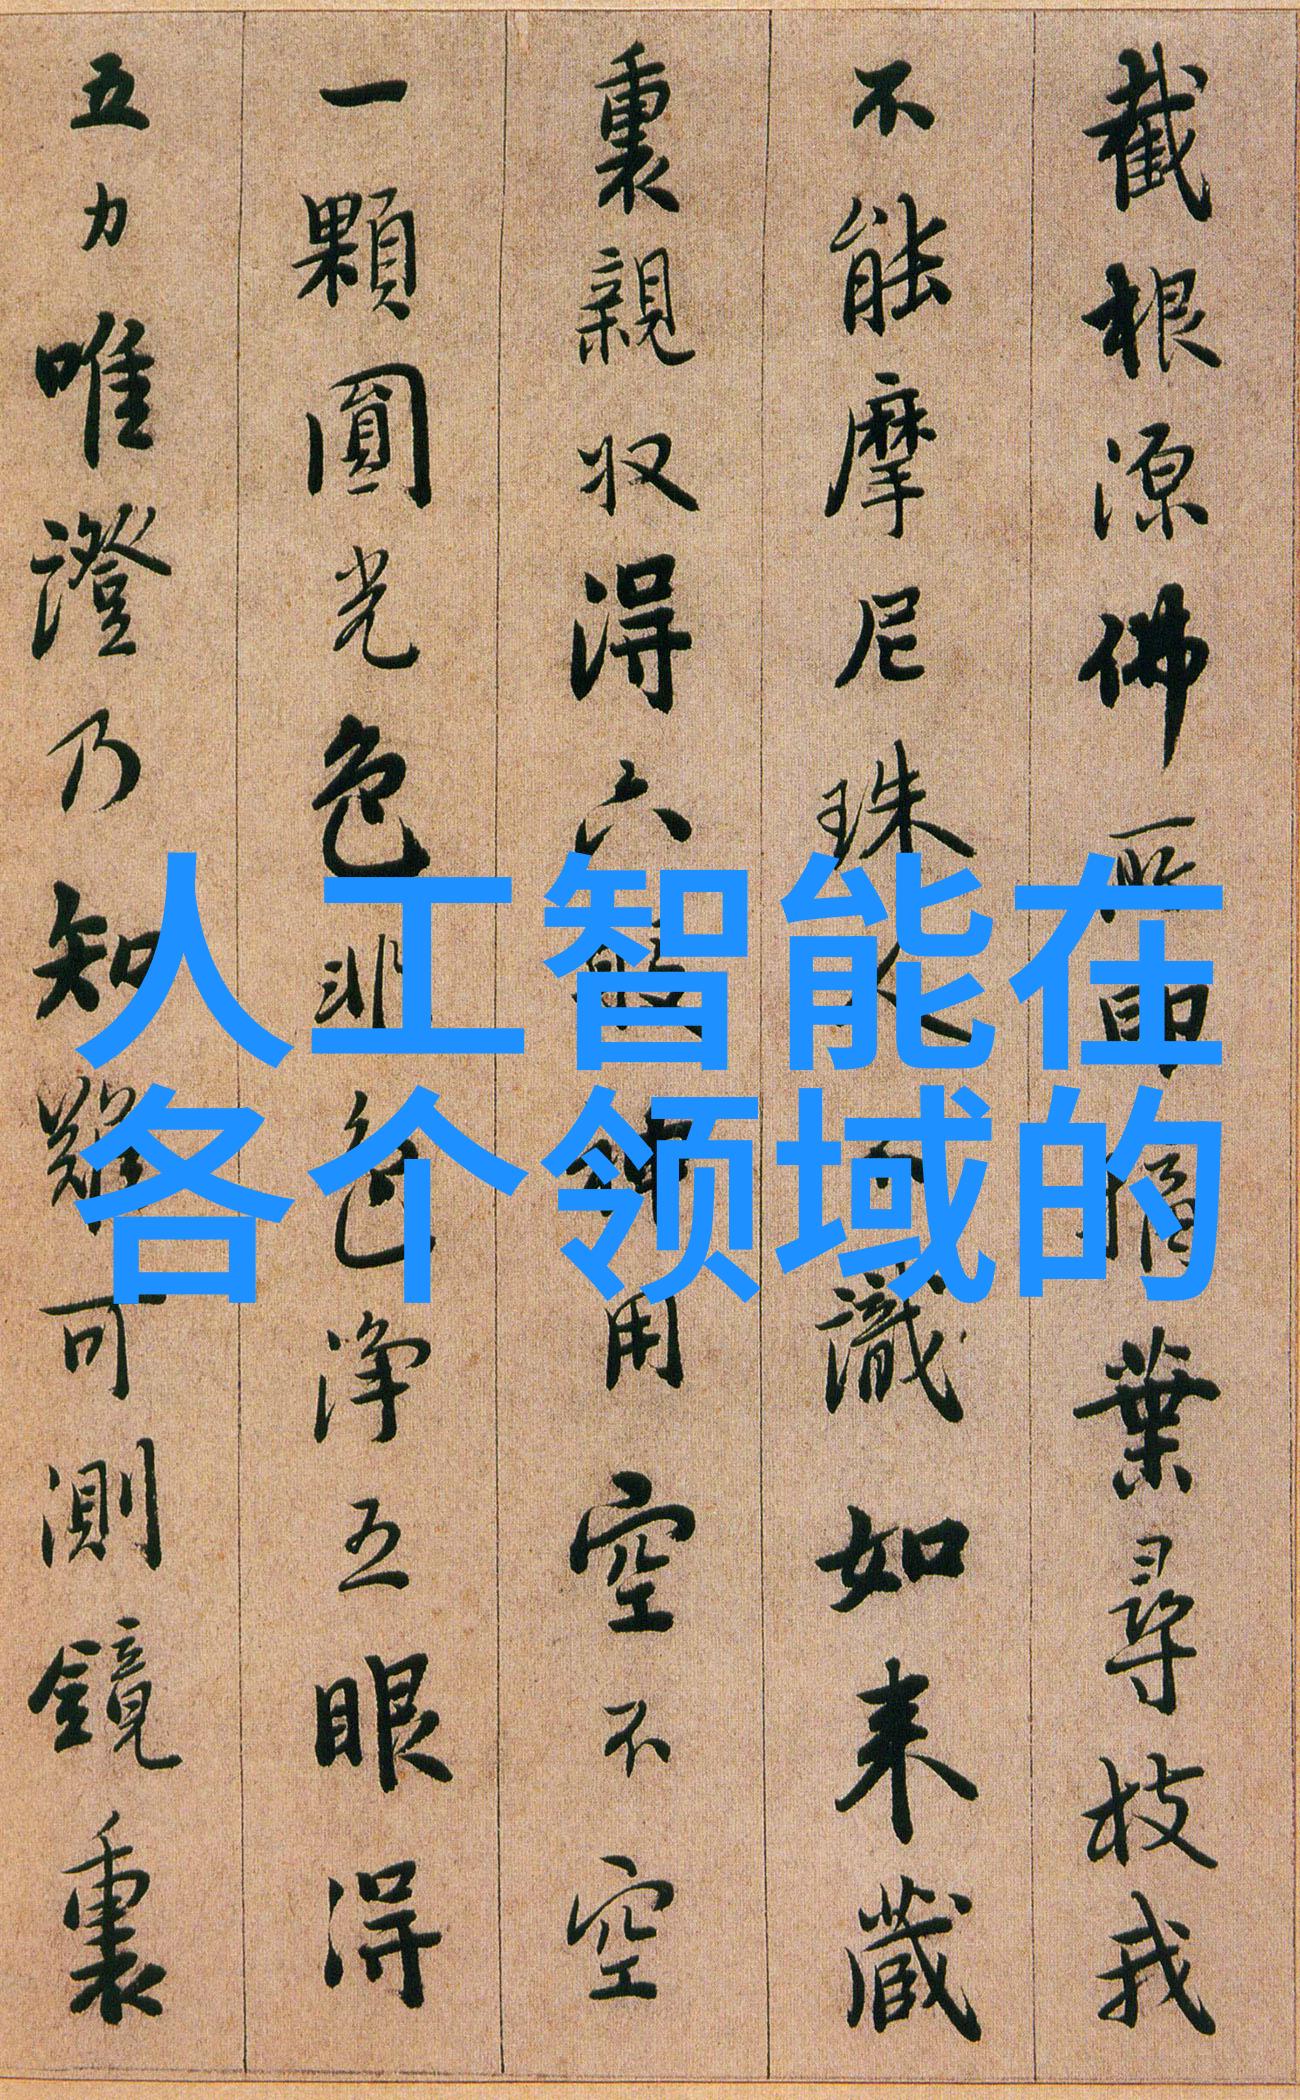 截根源佛所印摘葉尋枝我
不能摩尼珠人不識如来藏
裏親収得六般神用空不空
一顆圓光色非色淨五眼得
五力唯證乃知難可測鏡裏
人工智能在
各个领域的